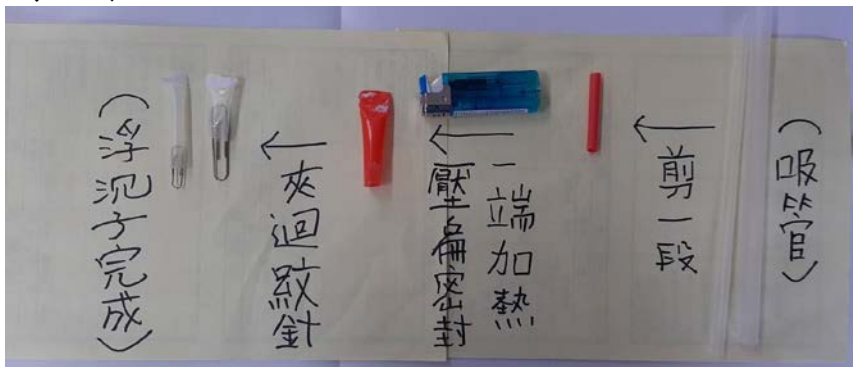 (吸管)
剪一段
一端加熱
壓扁密封
夾迴紋針
(浮沉子完成)